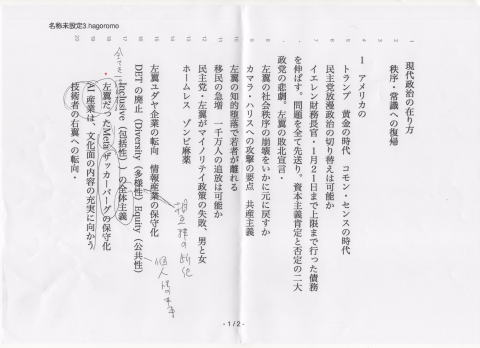 名称未設定3.hagoromo
現代政治の在り方
秩序・常識への復帰
1 アメリカの
トランプ 黄金の時代 コモン・センスの時代
民主党放漫政治の切り替えは可能か
イエレン財務長官・1月21日まで上限まで行った債務
を伸ばす。問題を全て先送り。資本主義肯定と否定の二大
政党の悲劇。左翼の敗北宣言・
左翼の社会秩序の崩壊をいかに元に戻すか
カマラ・ハリスへの攻撃の要点 共産主義
左翼の知的堕落で若者が離れる
移民の急増 一千万人の追放は可能か
民主党・左翼がマイノリテイ政策の失敗、男と女
ホームレス ゾンビ麻薬
左翼ユダヤ企業の転向 情報産業の保守化
DETの廃止(Diversity(多様性)Equity(公共性)
Inclusive(包括性))の全体主義
左翼だったMetaザッカーバーグの保守化
AI産業は、文化面の内容の充実に向かう
技術者の右翼への転向・
- 1 / 2 -